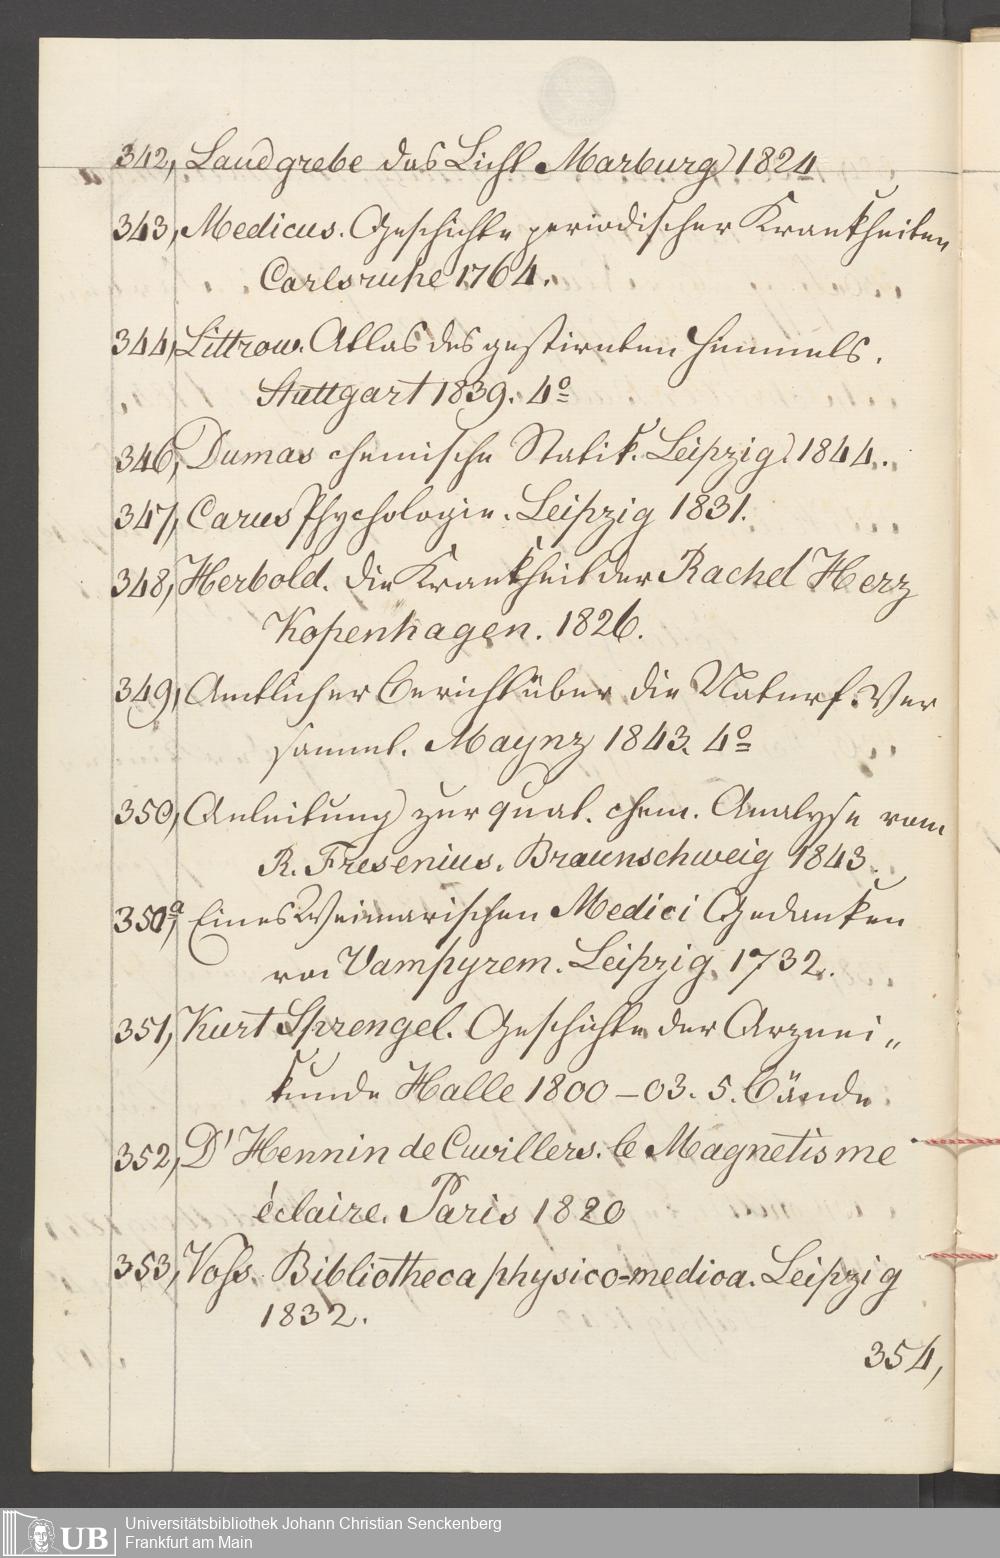 342, Landgrebe das Licht Marburg 1824
343, Medicus. Geschichte periodischer Krankheiten
Carlsruhe 1764.
344, Littrow. Atlas des gestirnten Himmels.
Stuttgart 1839. 4o
346, Dumas chemische Statik. Leipzig. 1844.
347, Carus Psychologie. Leipzig 1831.
348, Herbold. die Krankheit der Rachel Herz
Kopenhagen. 1826.
349, Amtlicher Bericht über die Naturf. Ver
samml. Maynz 1843. 4o
350, Anleitung zur qual. chem. Analyse vom
R. Fresenius. Braunschweig 1843.
350a, Eines Weimarischen Medici Gedanken
von Vampyrem. Leipzig. 1732.
351, Kurt Sprengel. Geschichte der Arznei„
kunde Halle 1800–03. 5. Bände
352, D'Hennin de Cuvillers. le Magnetisme
éclaire. Paris 1820
353, Voss. Bibliotheca physico-medica. Leipzig
1832.
354,
UB Universitätsbibliothek Johann Christian Senckenberg
Frankfurt am Main